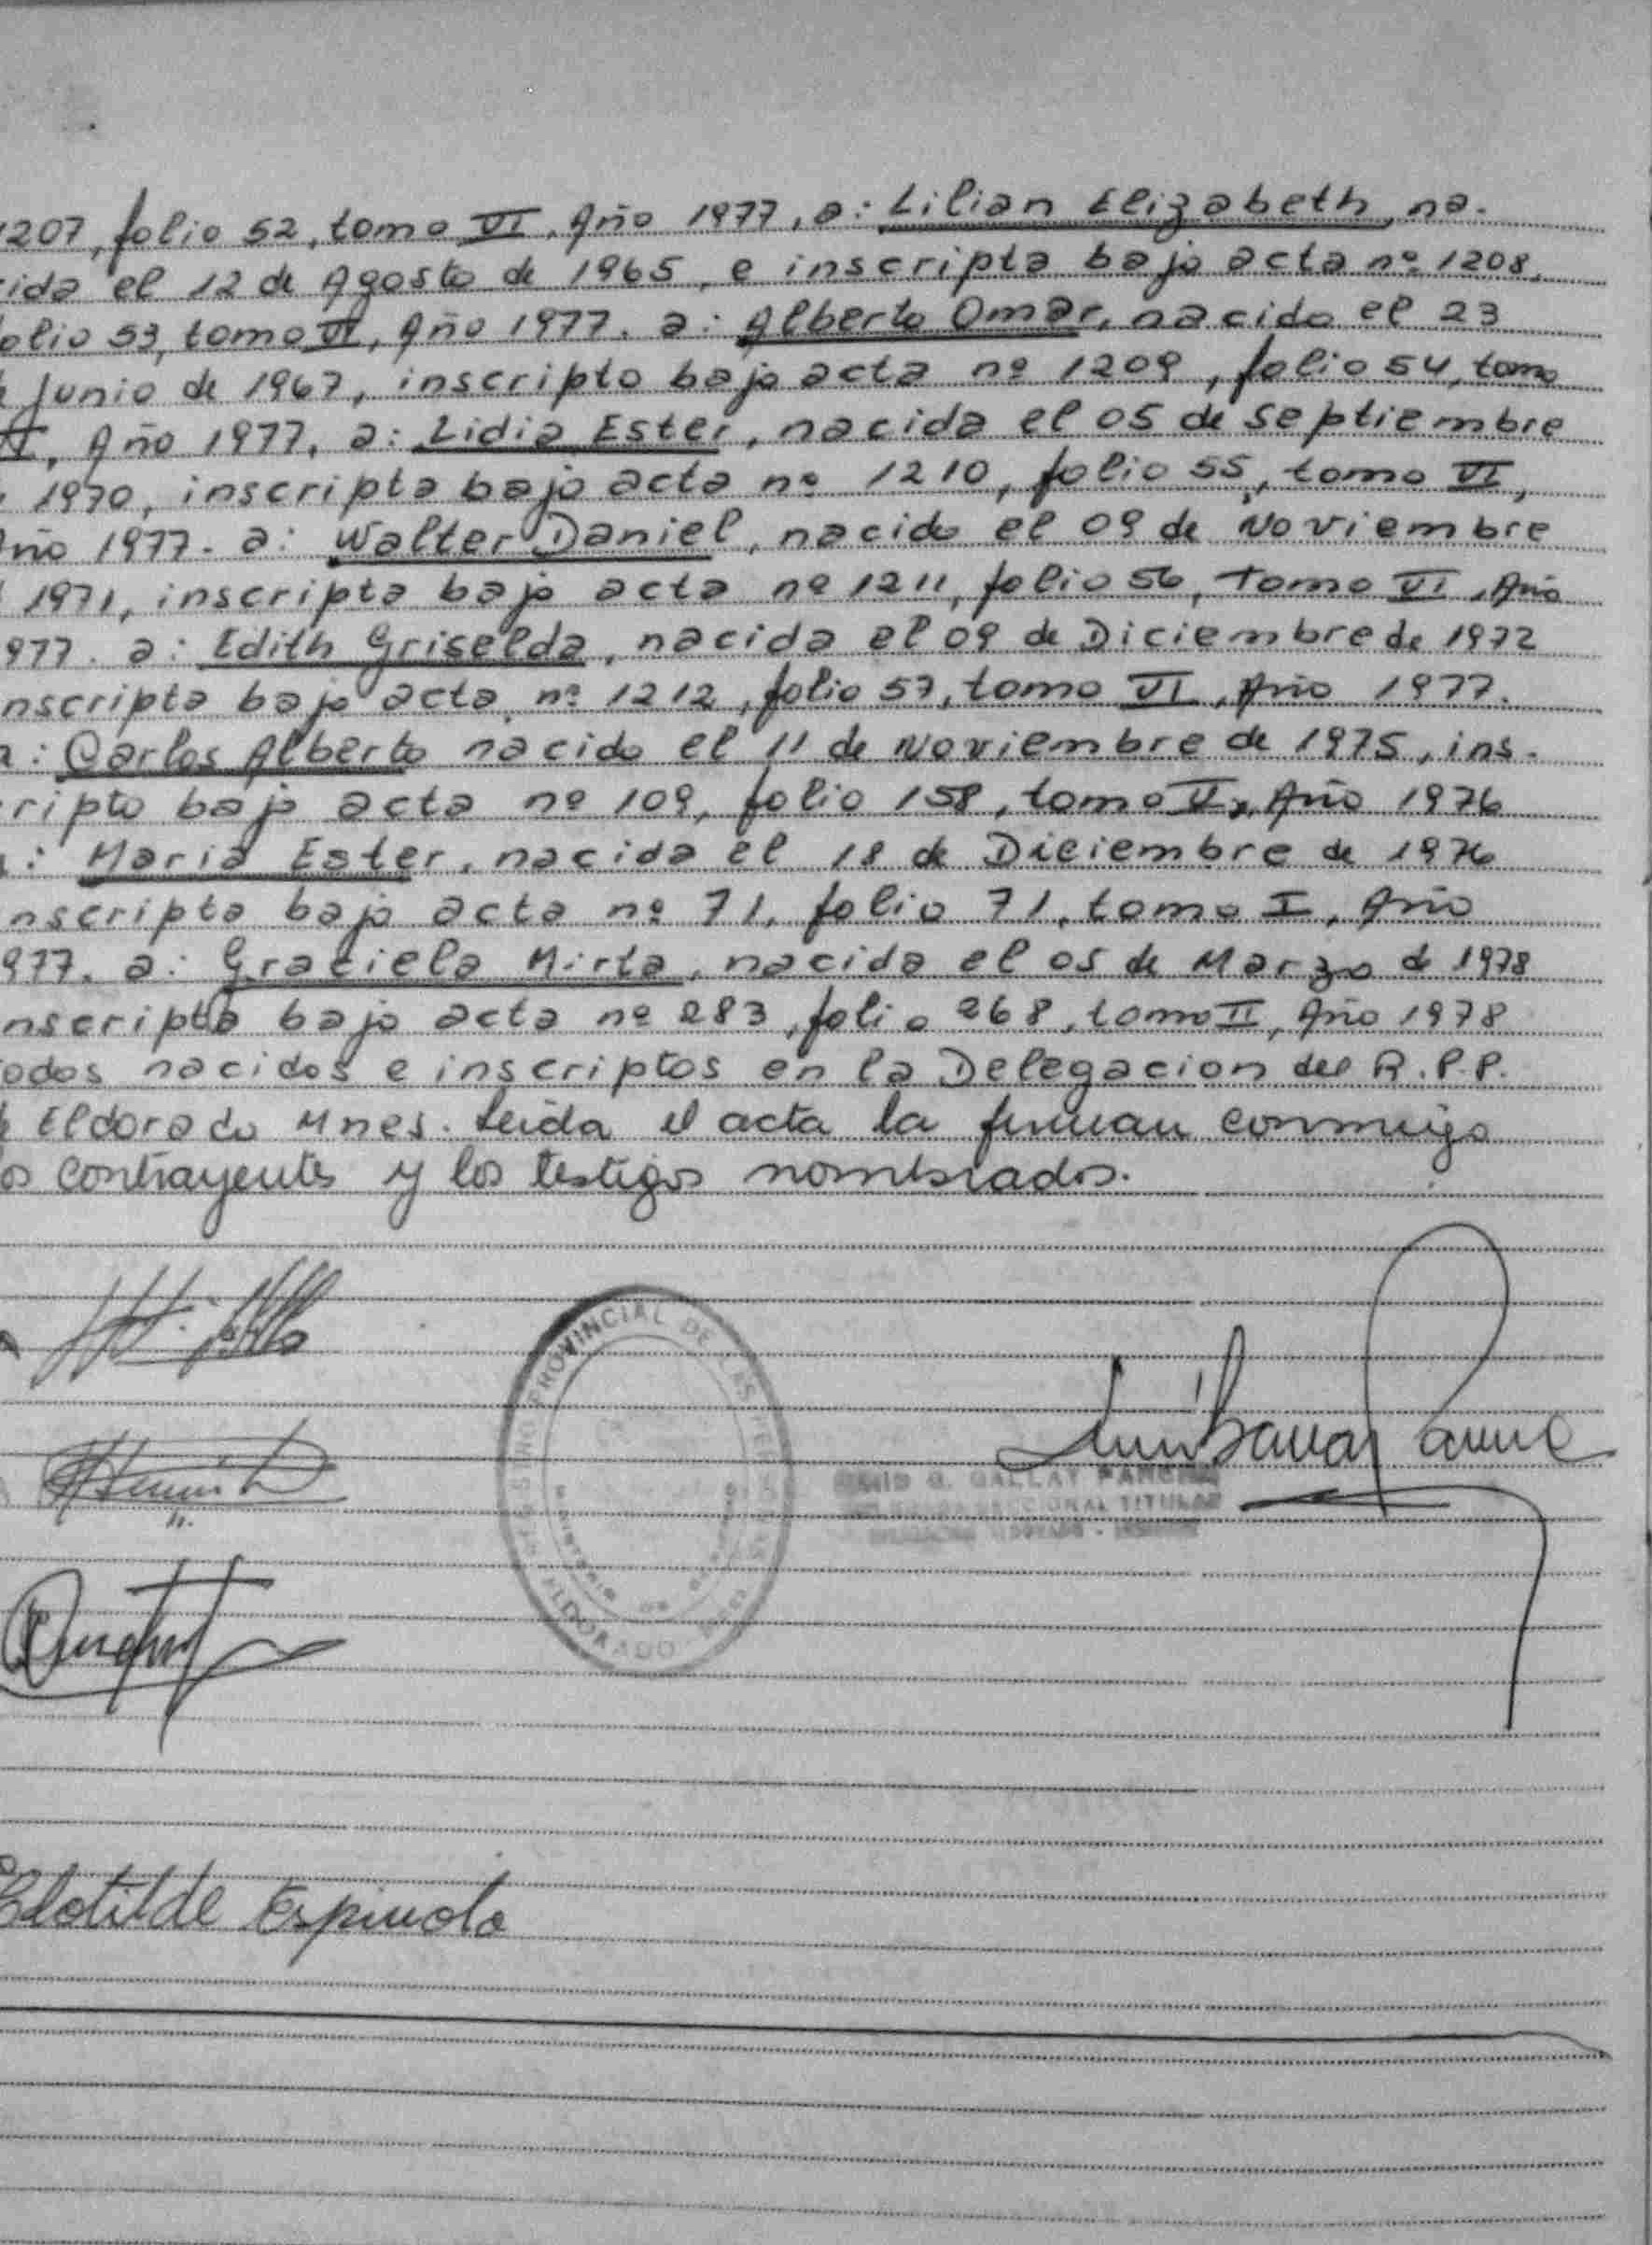 1207, folio 52, tomo VI, Año 1977, a: Lilian Elizabeth, na-
cida el 12 de Agosto de 1965, e inscripta bajo acta nº 1208,
folio 53, tomo VI, Año 1977. a: Alberto Omar, nacido el 23
Junio de 1967, inscripto bajo acta nº 1209, folio 54, tomo
VI, Año 1977, a: Lidia Ester, nacida el 05 de Septiembre
1970, inscripta bajo acta nº 1210, folio 55, tomo VI,
Año 1977. a: Walter Daniel, nacido el 09 de Noviembre
1971, inscripto bajo acta nº 1211, folio 56, Tomo VI, Año
977. a: Edith Griselda, nacida el 09 de Diciembre de 1972
nscripta bajo acta nº 1212, folio 57, tomo VI, Año 1977.
a: Carlos Alberto nacido el 11 de Noviembre de 1975, ins-
cripto bajo acta nº 109, folio 158, tomo V, Año 1976
: Maria Ester, nacida el 18 de Diciembre de 1976
nscripta bajo acta nº 71, folio 71, tomo I, Año
977. a: Graciela Mirta, nacida el 05 de Marzo d 1978
nscripta bajo acta nº 283, folio 268, tomo II, Año 1978
odos nacidos e inscriptos en la Delegacion del R.P.P.
Eldorado Mnes. Leida el acta la firman conmigo
os contrayentes y los testigos nombrados.
PROVINCIAL DE LAS PER
ELDORADO
G. GALLAY
TITULAR
Clotilde Espindola